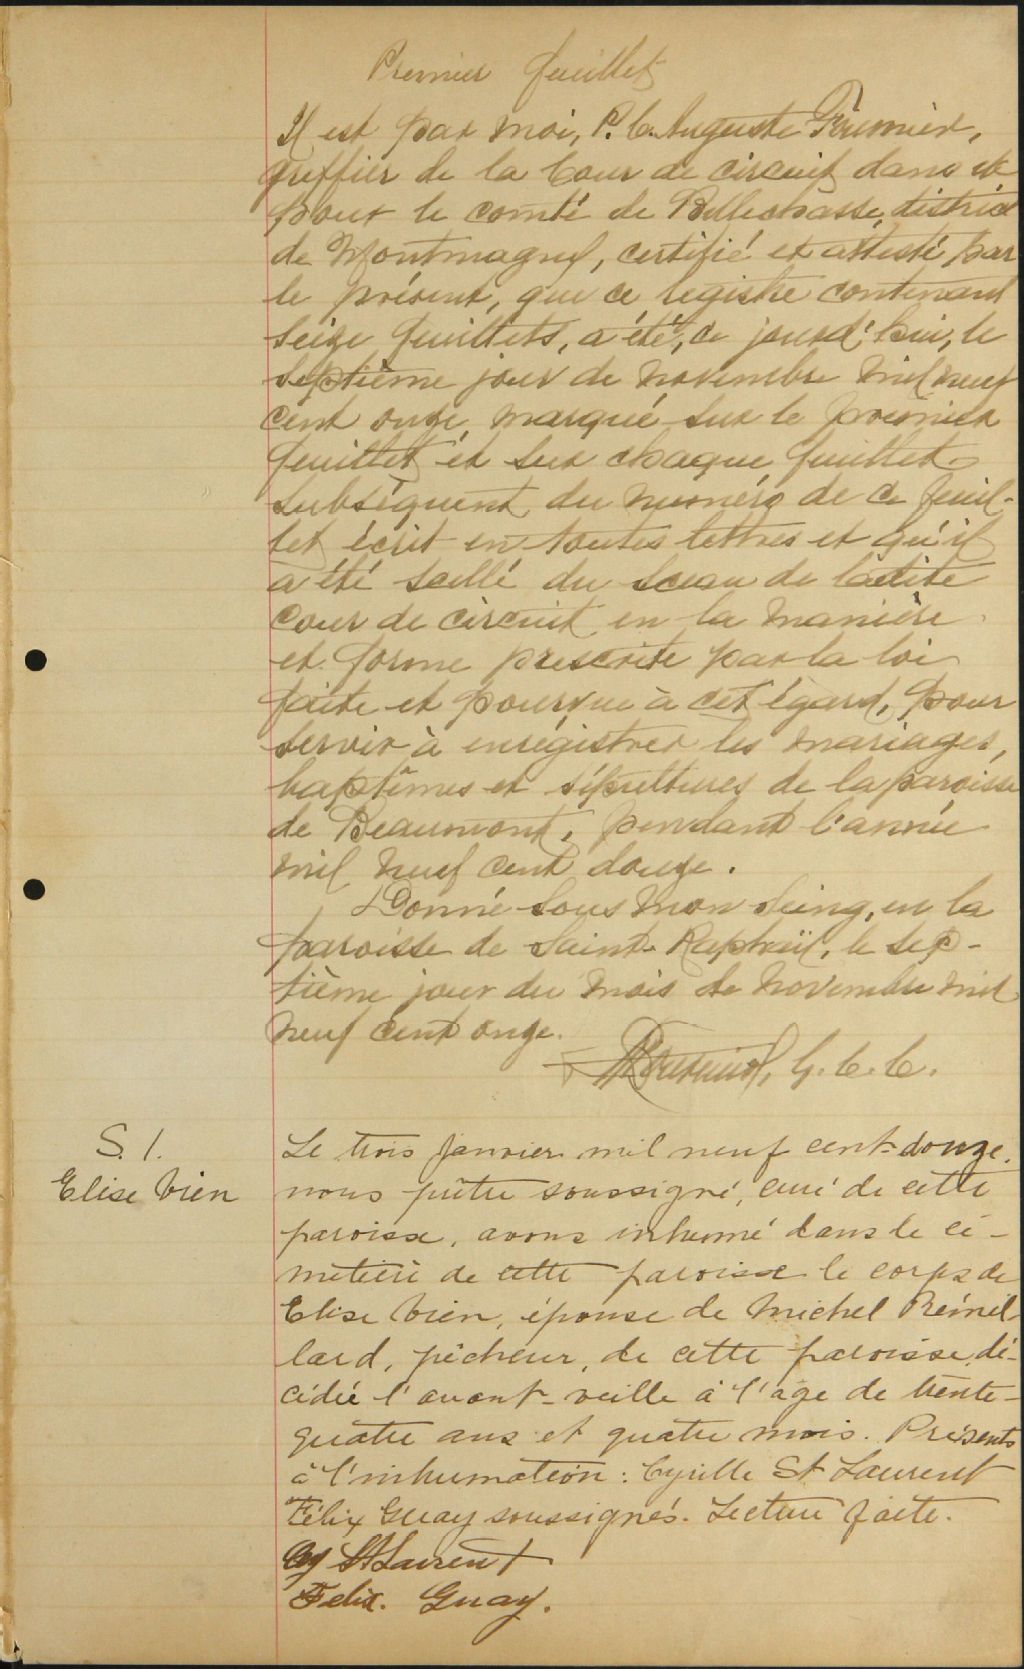 Premier feuillet
Il est par moi, P. C. Auguste Fournier,
greffier de la Cour de circuit dans et
pour le comté de Bellechasse, district
de Montmagny, certifié et attesté par
le présent, que ce registre contenant
seize feuillets, a été, ce jourd'hui, le
septième jour de novembre mil neuf
cent onze, marqué sur le premier
feuillet et sur chaque feuillet
subséquent du numéro de ce feuil-
let écrit en toutes lettres et qu'il
a été scellé du sceau de ladite
Cour de circuit en la manière
et forme prescrite par la loi
faite et pourvue à cet égard, pour
servir à enrégistrer les mariages,
baptêmes et sépultures de la paroisse
de Beaumont, pendant l'année
mil neuf cent douze.
Donné sous mon seing, en la
paroisse de Saint-Raphaël, le sep-
tième jour du mois de novembre mil
neuf cent onze.
G. C. C.
S. 1.
Elise Vien
Le trois janvier mil neuf cent-douze,
nous prêtre soussigné, curé de cette
paroisse, avons inhumé dans le ci-
metière de cette paroisse le corps de
Elise Vien, épouse de Michel Rémil
lard, pêcheur, de cette paroisse, dé-
cédée l'avant-veille à l'âge de trente-
quatre ans et quatre mois. Présents
à l'inhumation: Cyrille St Laurent
Félix Guay soussignés. Lecture faite.
Cy St Laurent
Felix. Guay.